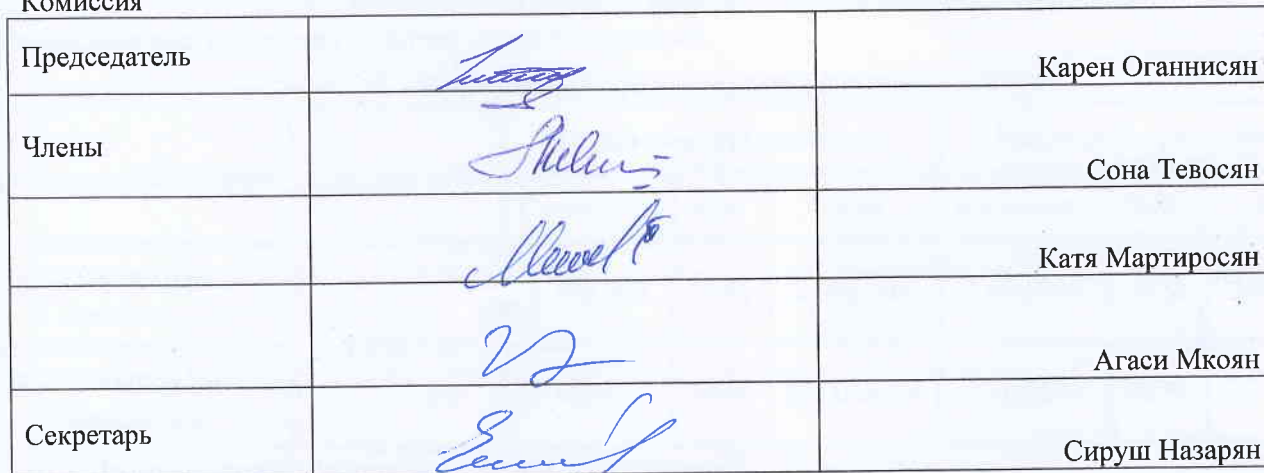 Комиссия
Председатель Карен Оганнисян
Члены Сона Тевосян
Катя Мартиросян
Агаси Мкоян
Секретарь Сируш Назарян